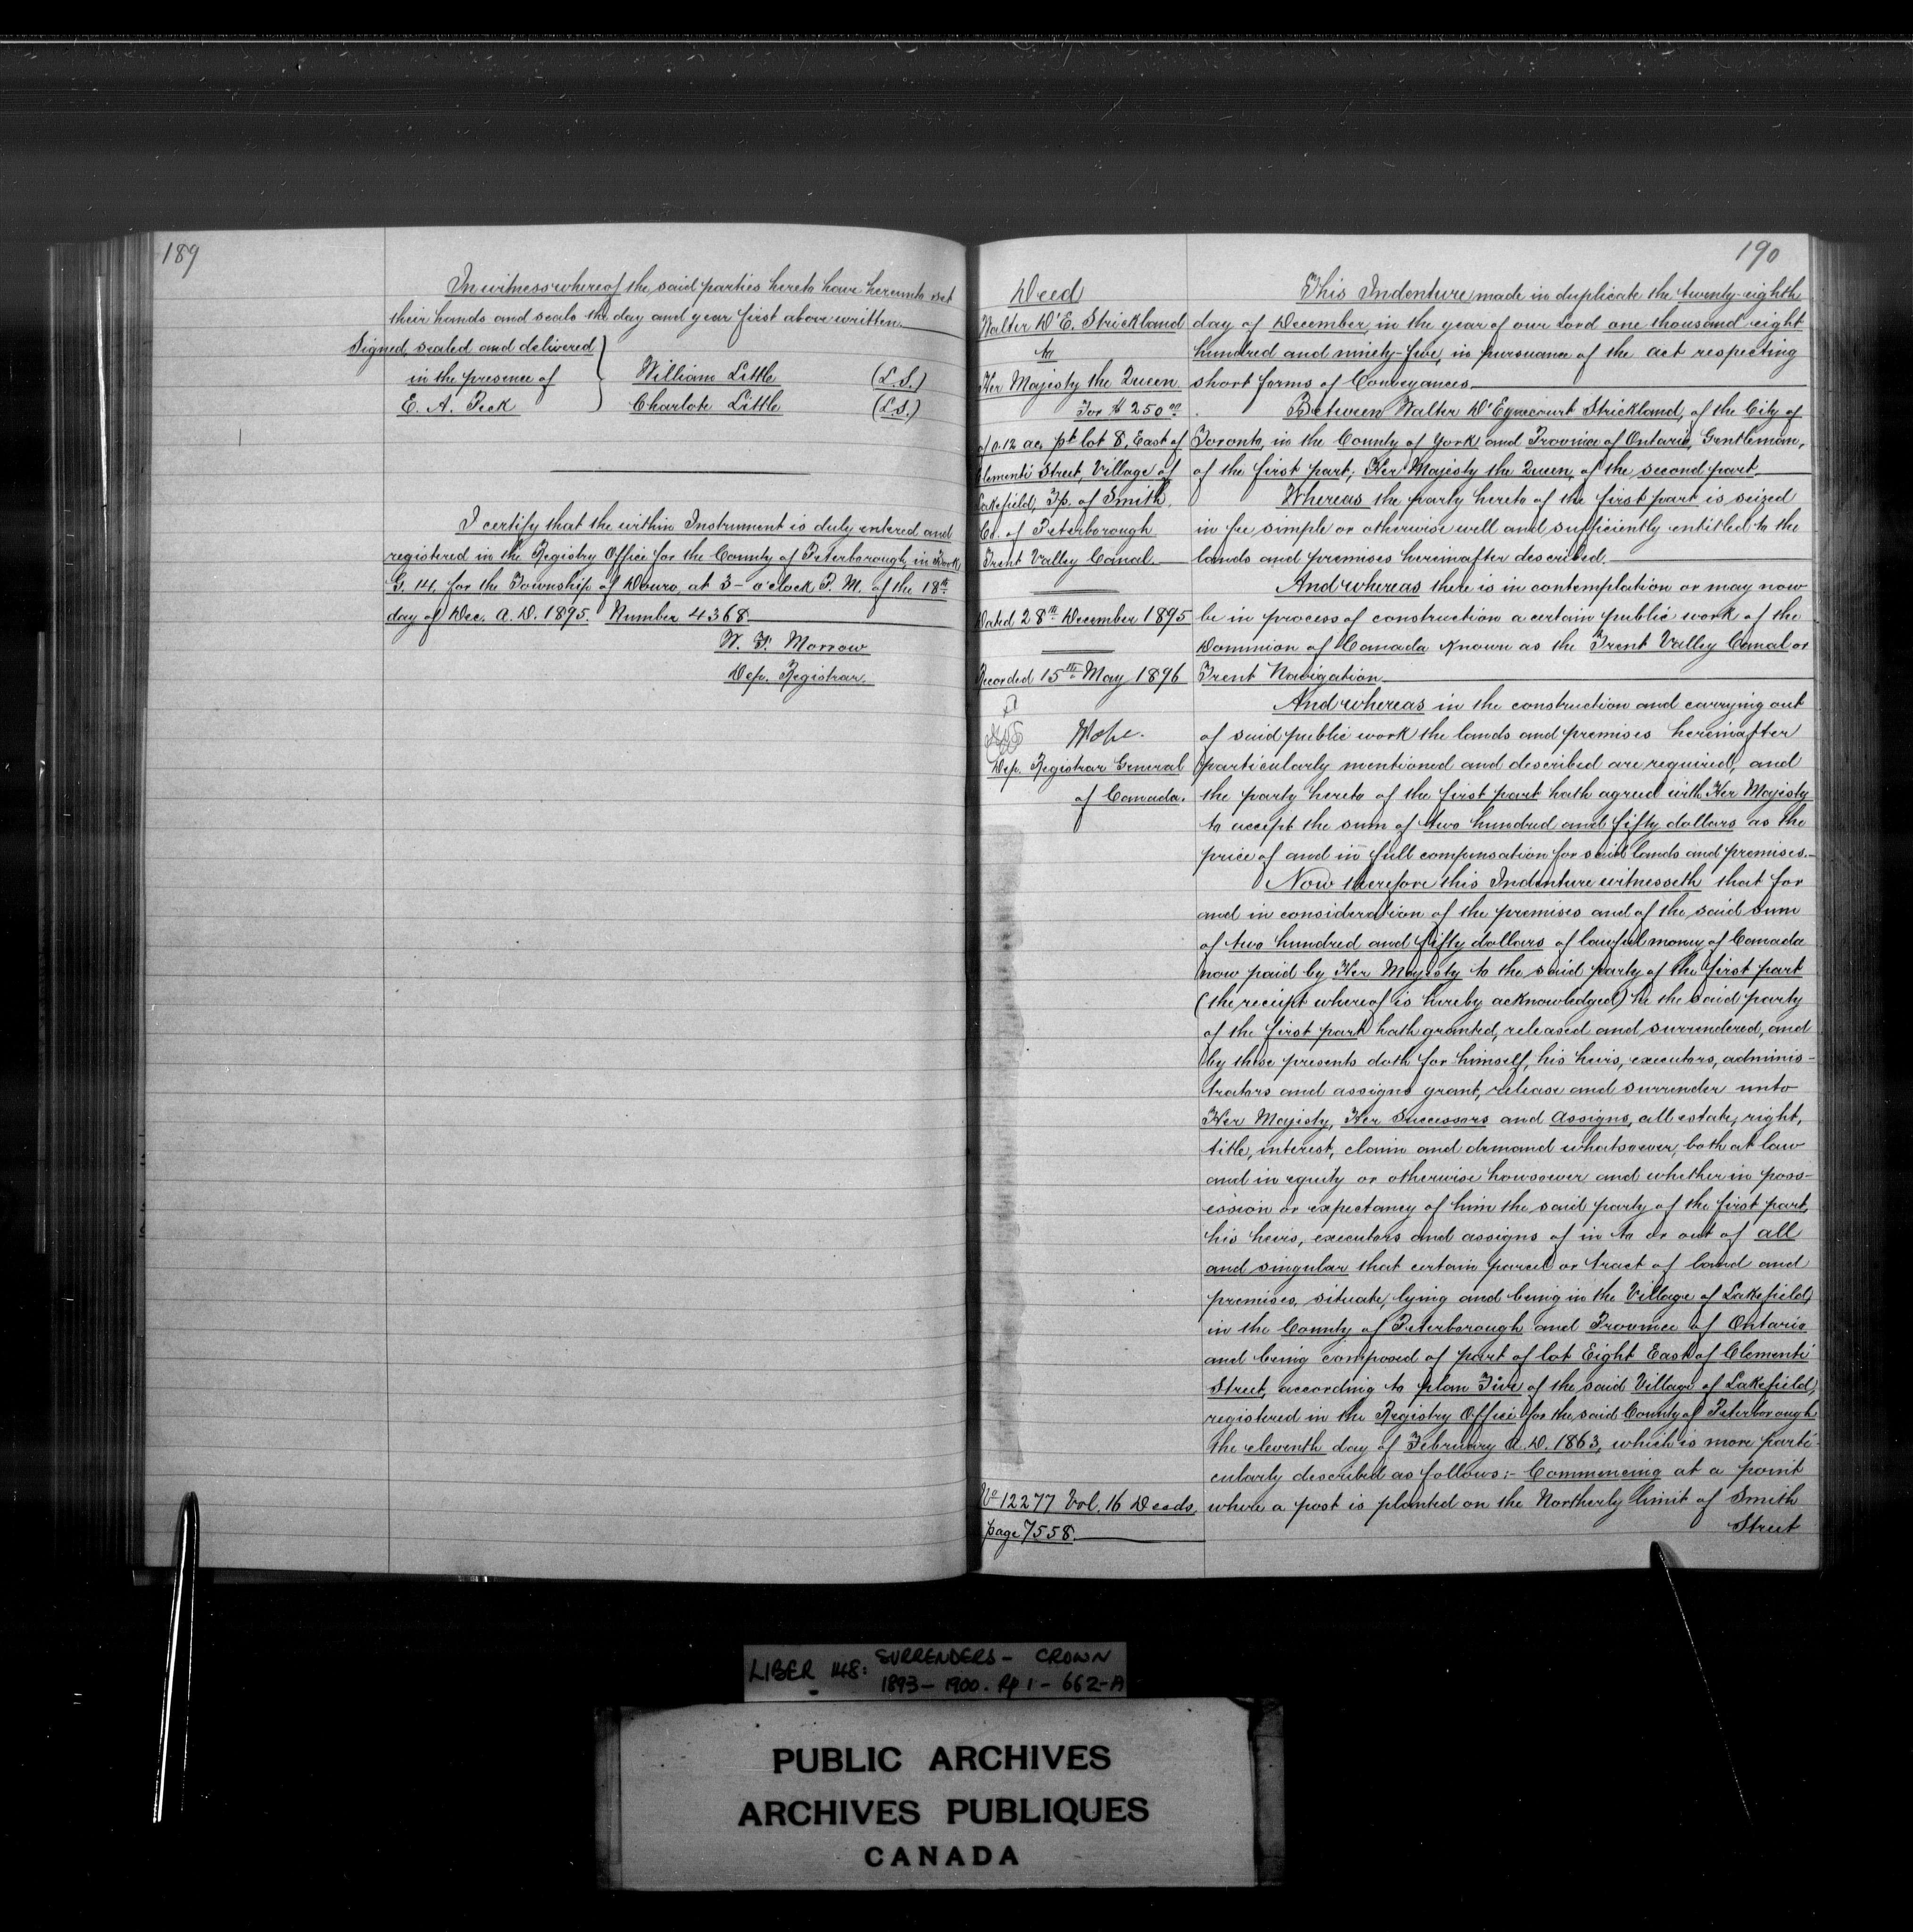 189
In witness whereof the said parties hereto have hereunto set
their hands and seals the day and year first above written.
Signed, sealed and delivered
in the presence of
E. A. Peck
William Little (L.S.)
Charlote Little (L.S.)
I certify that the within Instrument is duly entered and
registered in the Registry Office for the County of Peterborough, in Book
G. 14. for the Township of Douro, at 3 - o'clock P. M. of the 18th
day of Dec. A. D. 1895. Number 4368.
W. F. Morrow
Dep. Registrar.
190
Deed
Walter D'E. Strickland
to
Her Majesty the Queen
For $250.00
of 0.12 ac. pt lot 8, East of
Clementi Street, Village of
Lakefield, Tp. of Smith.
Co. of Peterborough
Trent Valley Canal.
Dated 28th December 1895
Recorded 15th May 1896
Dep. Registrar General
of Canada.
No 12277 Vol. 16 Deeds,
page 7558.
This Indenture made in duplicate the twenty-eighth
day of December, in the year of our Lord one thousand eight
hundred and ninety-five, in pursuance of the act respecting
short forms of Conveyances.
Between Walter D'Eyncourt Strickland, of the City of
Toronto, in the County of York and Province of Ontario, Gentleman,
of the first part; Her Majesty the Queen, of the second part
Whereas the party hereto of the first part is seized
in fee simple or otherwise well and sufficiently entitled to the
lands and premises hereinafter described.
And whereas there is in contemplation or may now
be in process of construction a certain public work of the
Dominion of Canada known as the Trent Valley Canal or
Trent Navigation.
And whereas in the construction and carrying out
of said public work the lands and premises hereinafter
particularly mentioned and described are required, and
the party hereto of the first part hath agreed with Her Majesty
to accept the sum of two hundred and fifty dollars as the
price of and in full compensation for said lands and premises.-
Now therefore this Indenture witnesseth that for
and in consideration of the premises and of the said sum
of two hundred and fifty dollars of lawful money of Canada
now paid by Her Majesty to the said party of the first part
(the receipt whereof is hereby acknowledged) he the said party
of the first part hath granted, released and surrendered, and
by these presents doth for himself, his heirs, executors, adminis-
trators and assigns grant, release and surrender unto
Her Majesty, Her Successors and Assigns, all estate, right,
title, interest, claim and demand whatsoever, both at law
and in equity or otherwise howsoever and whether in poss-
ession or expectancy of him the said party of the first part,
his heirs, executors and assigns of in to or out of all
and singular that certain parcel or tract of land and
premises, situate, lying and being in the Village of Lakefield,
in the County of Peterborough and Province of Ontario
and being composed of part of lot Eight East of Clementi
Street, according to plan Five of the said Village of Lakefield,
registered in the Registry Office for the said County of Peterborough
the eleventh day of February A. D. 1863, which is more parti-
cularly described as follows:- Commencing at a point
where a post is planted on the Northerly limit of Smith
Street
LIBER 148: SURRENDERS - CROWN
1893 - 1900. Pp 1 - 662-A
PUBLIC ARCHIVES
ARCHIVES PUBLIQUES
CANADA